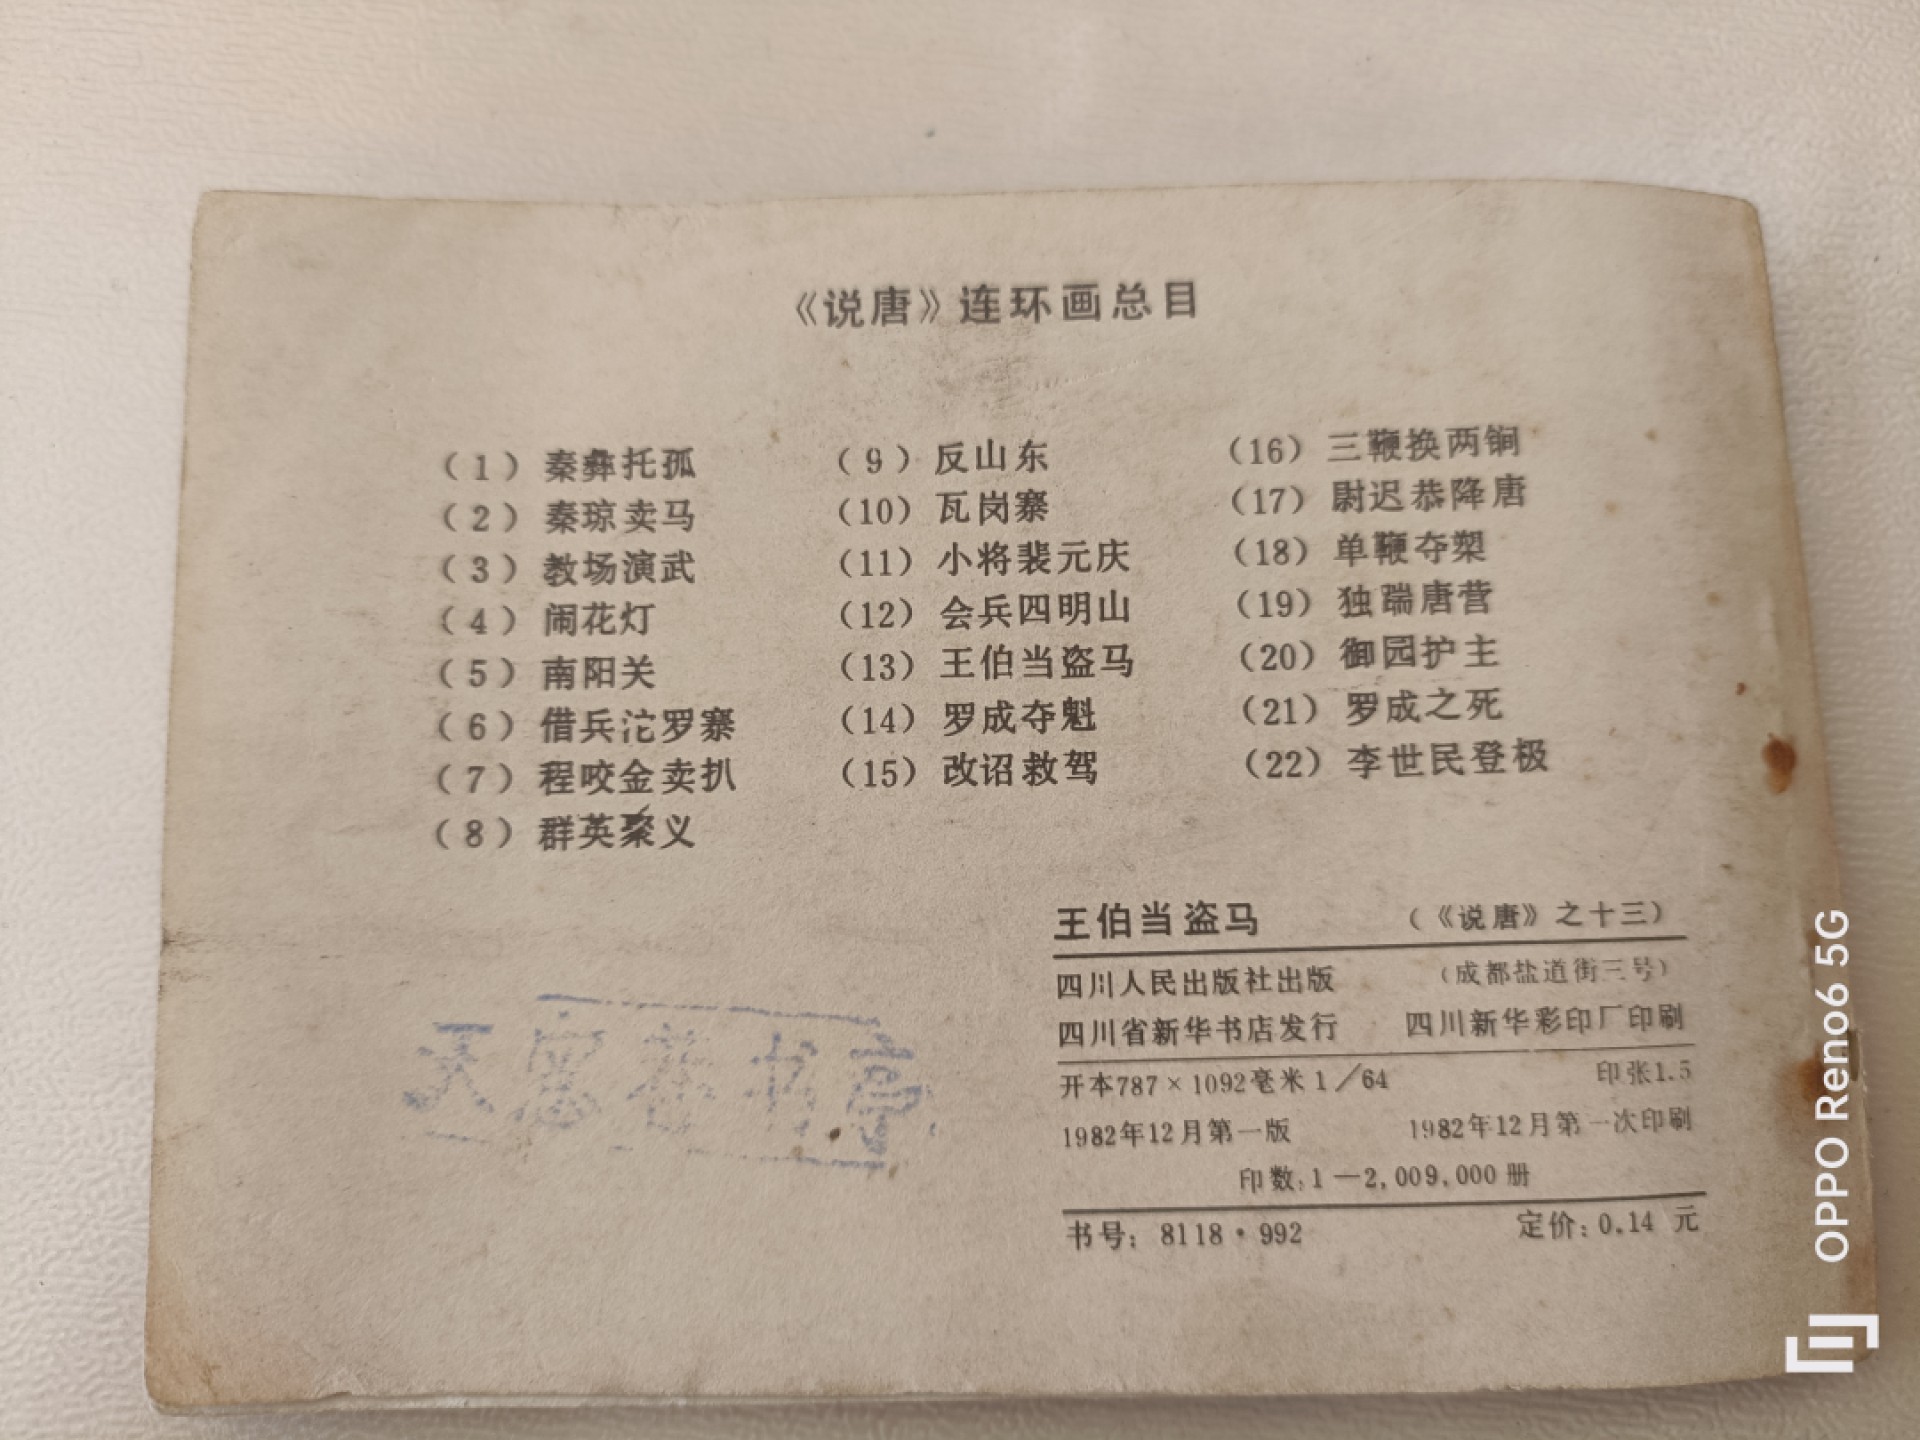 《说唐》连环画总目
（1）秦彝托孤
（2）秦琼卖马
（3）教场演武
（4）闹花灯
（5）南阳关
（6）借兵沱罗寨
（7）程咬金卖扒
（8）群英聚义
（9）反山东
（10）瓦岗寨
（11）小将裴元庆
（12）会兵四明山
（13）王伯当盗马
（14）罗成夺魁
（15）改诏救驾
（16）三鞭换两锏
（17）尉迟恭降唐
（18）单鞭夺槊
（19）独踹唐营
（20）御园护主
（21）罗成之死
（22）李世民登极
王伯当盗马 （《说唐》之十三）
四川人民出版社出版 （成都盐道街三号）
四川省新华书店发行 四川新华彩印厂印刷
开本787×1092毫米 1／64 印张1.5
1982年12月第一版 1982年12月第一次印刷
印数：1—2,009,000 册
书号：8118·992 定价：0.14 元
OPPO Reno6 5G